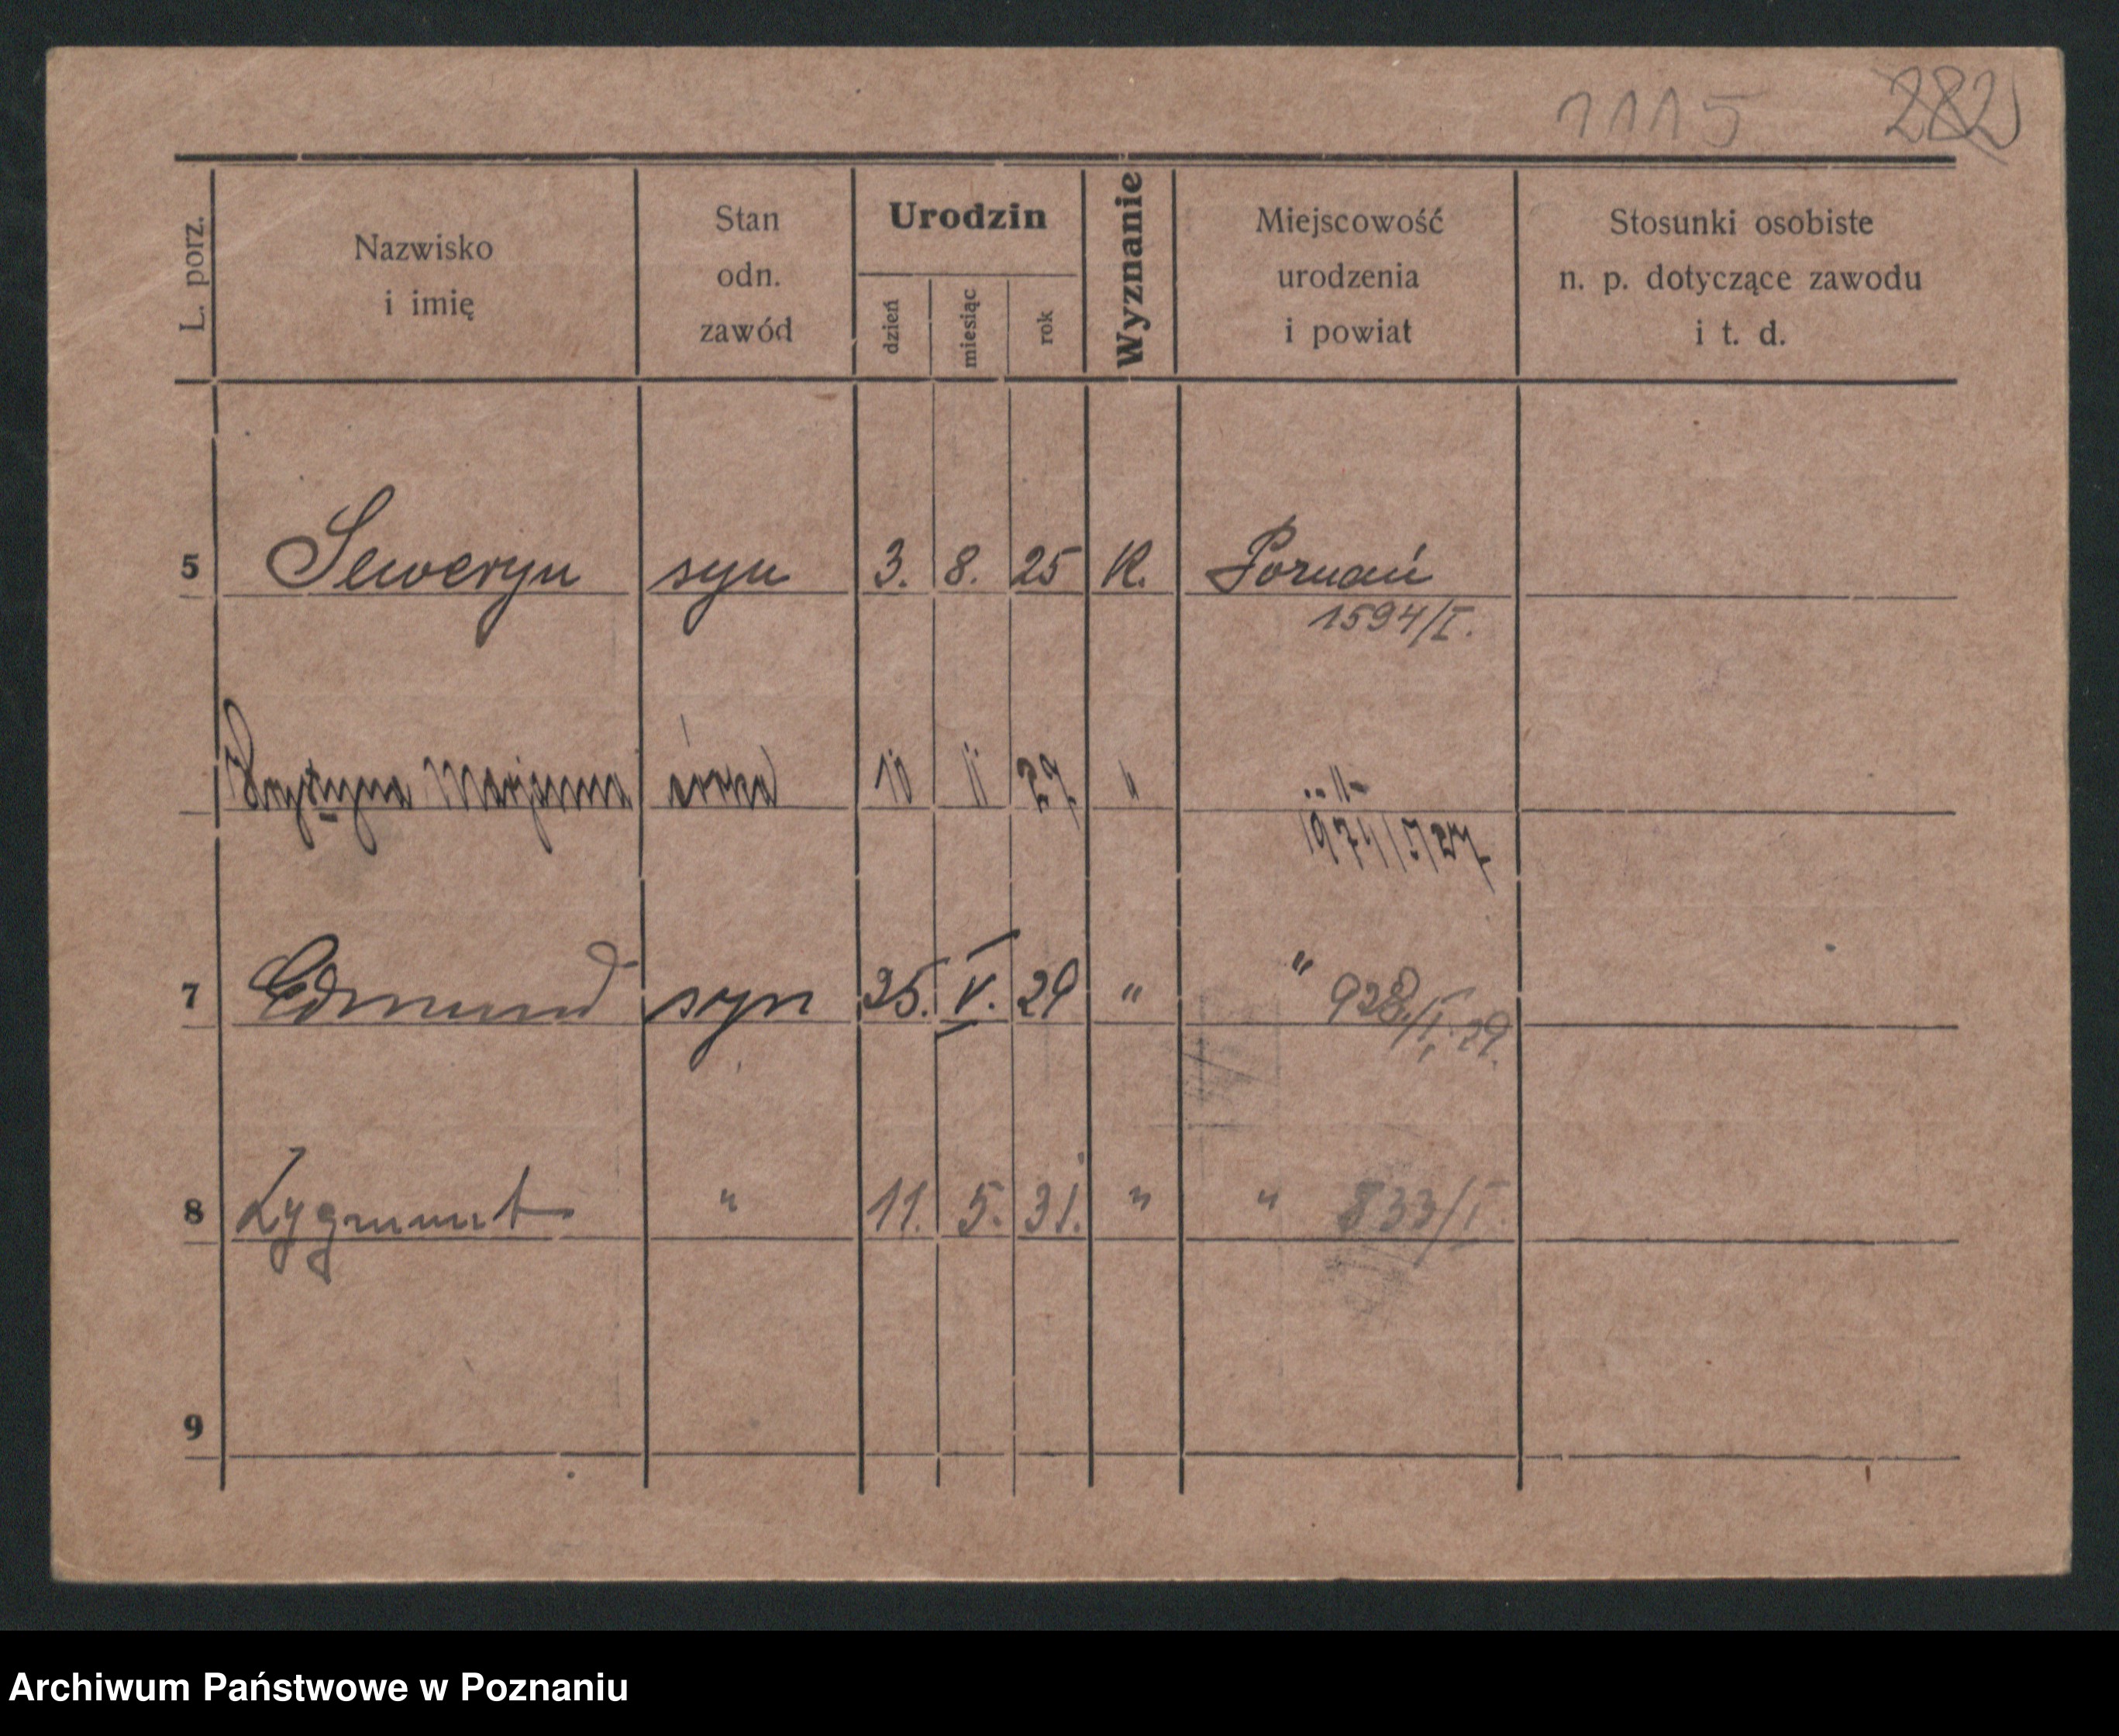 1115 282
L. porz.
Nazwisko
i imię
Stan
odn.
zawód
Urodzin
dzień
miesiąc
rok
Wyznanie
Miejscowość
urodzenia
i powiat
Stosunki osobiste
n. p. dotyczące zawodu
i t. d.
5 Seweryn syn 3. 8. 25 K. Poznań
1594/I.
Krystyna Marjanna córka 10 11 27 " -"-
1974/I/27
7 Edmund syn 25. V. 29 " "
928/I. 29.
8 Zygmunt " 11. 5. 31. " " 833/I.
9
Archiwum Państwowe w Poznaniu